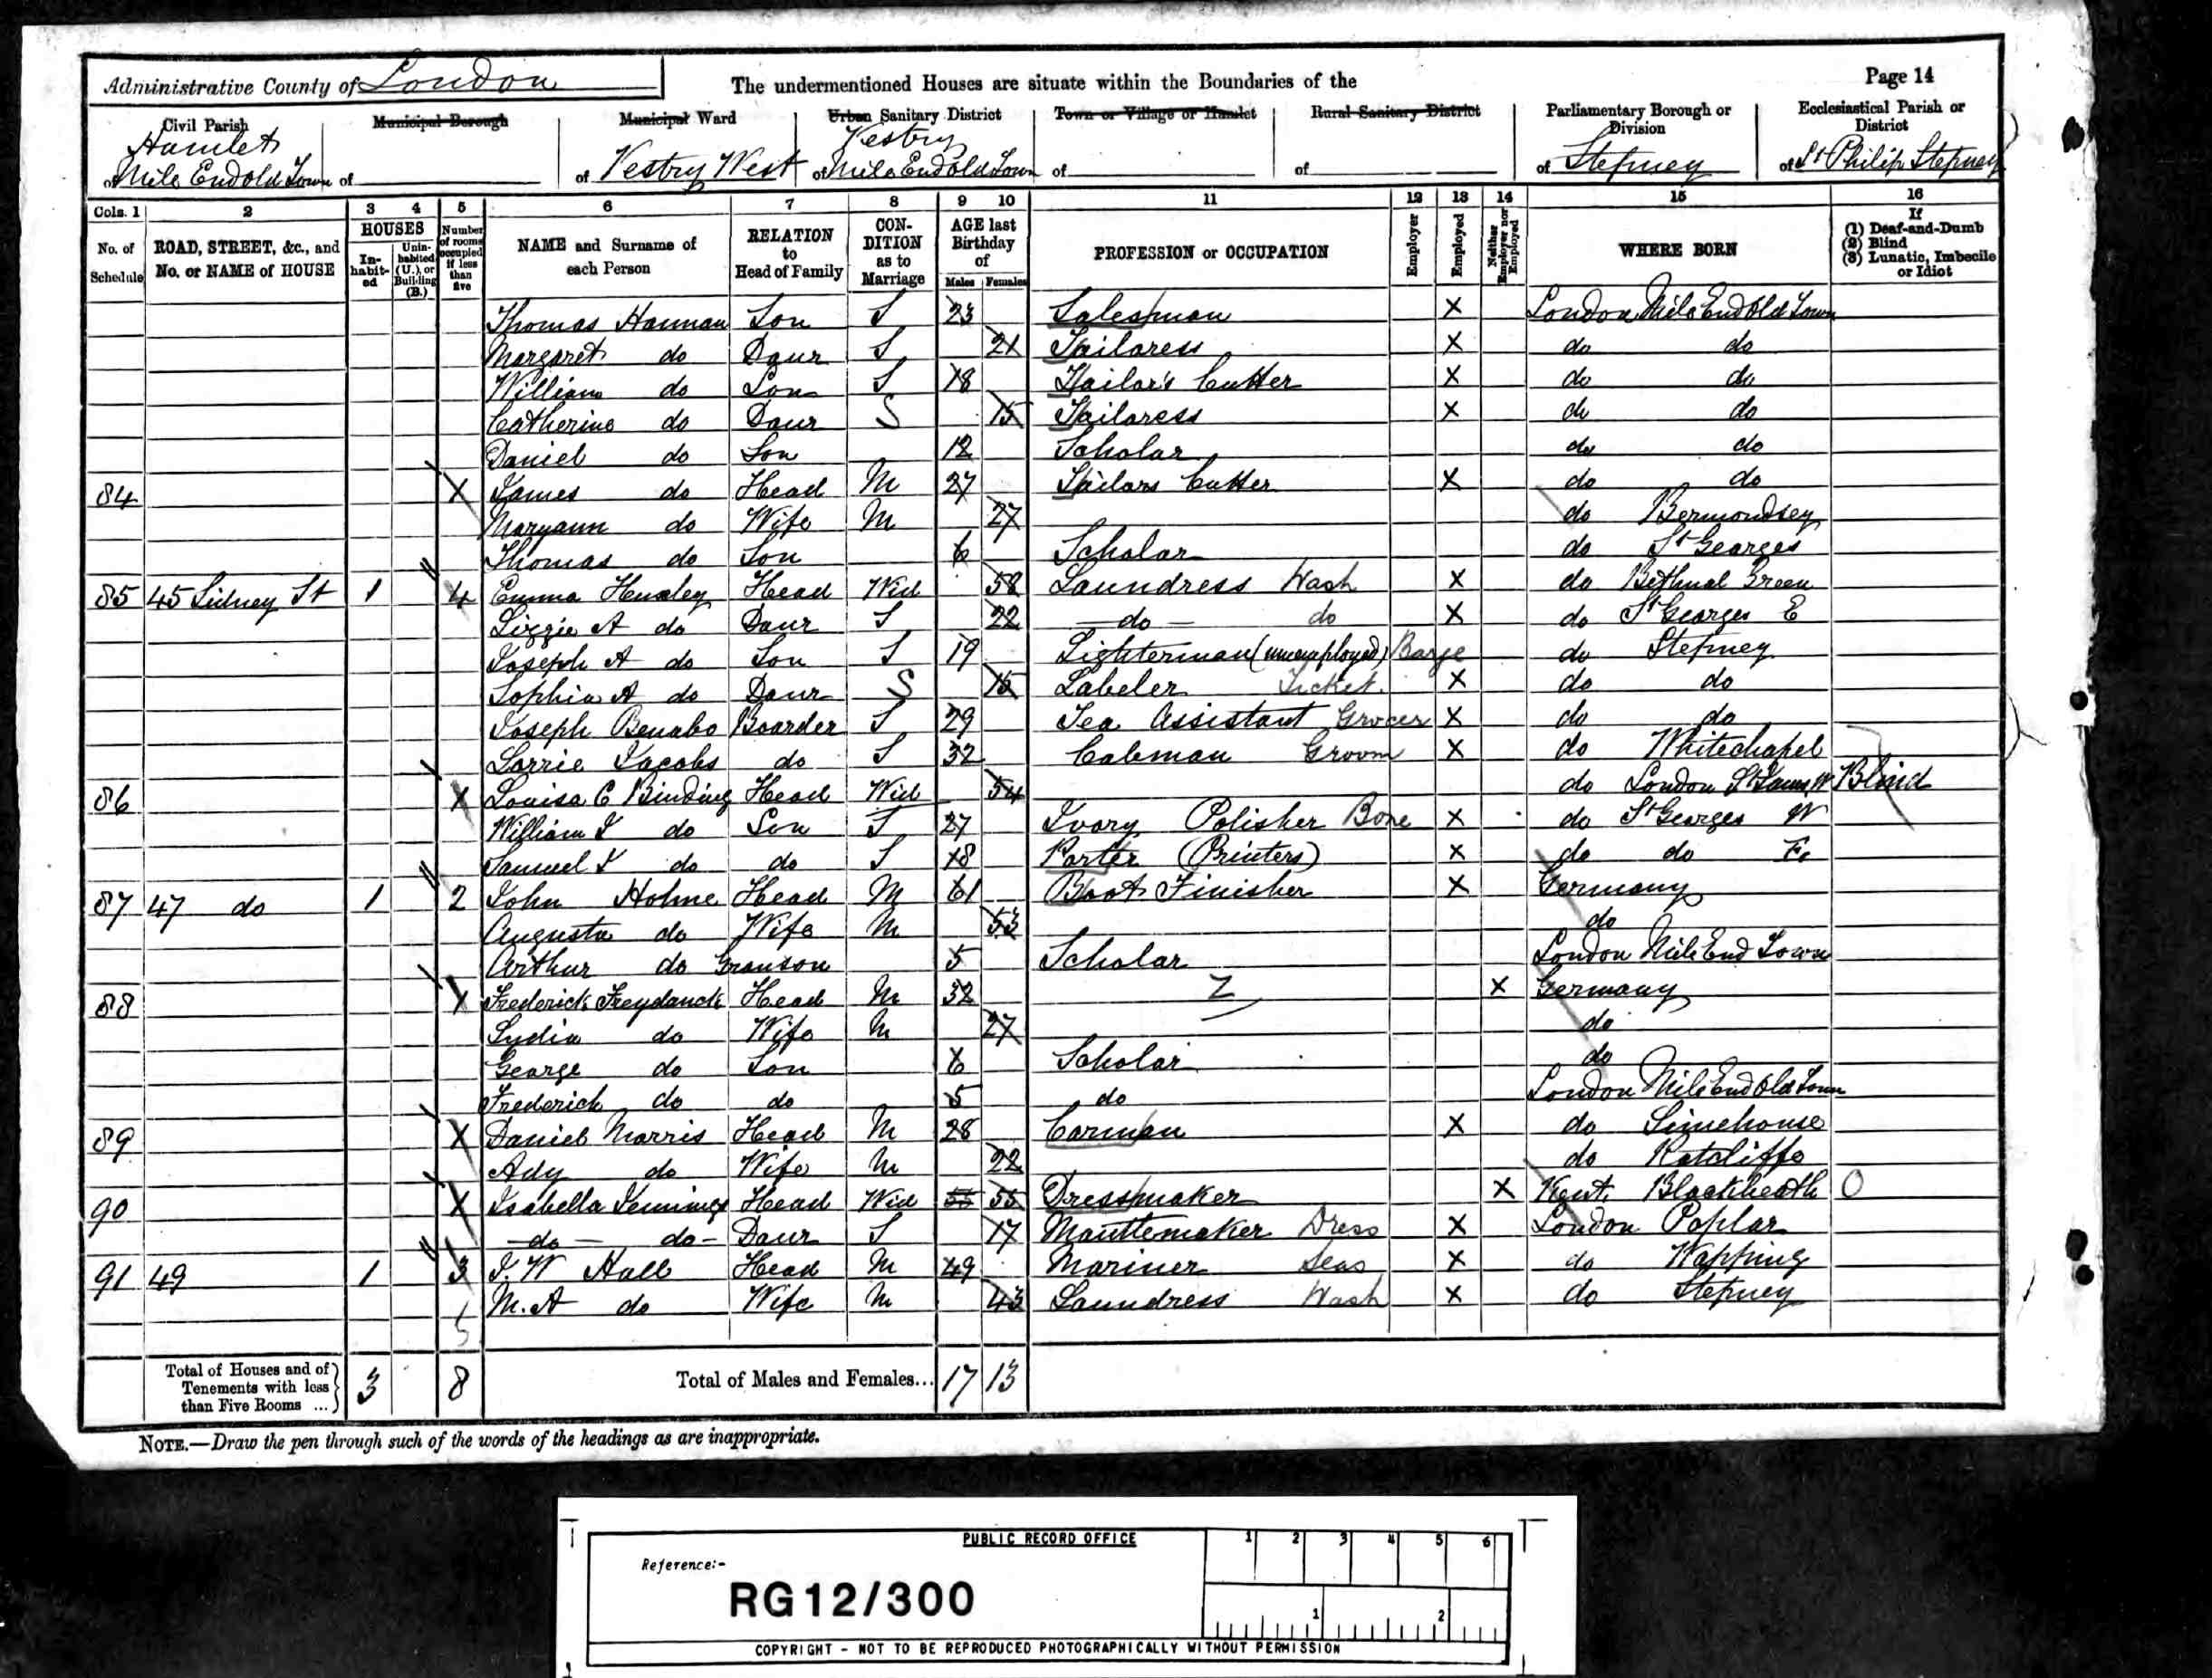 Administrative County of London The undermentioned Houses are situate within the Boundaries of the Page 14
Civil Parish Municipal Borough Municipal Ward Urban Sanitary District Town or Village or Hamlet Rural Sanitary District Parliamentary Borough or Division Ecclesiastical Parish or District
Hamlet Vestry
of Mile End Old Town of of Vestry West of Mile End Old Town of of of Stepney of St Philip Stepney
Cols. 1 2 3 4 5 6 7 8 9 10 11 12 13 14 15 16
No. of Schedule ROAD, STREET, &c., and No. or NAME of HOUSE HOUSES Inhabited Uninhabited (U.), or Building (B.) Number of rooms occupied if less than five NAME and Surname of each Person RELATION to Head of Family CONDITION as to Marriage AGE last Birthday of Males Females PROFESSION or OCCUPATION Employer Employed Neither Employer nor Employed WHERE BORN If (1) Deaf-and-Dumb (2) Blind (3) Lunatic, Imbecile or Idiot
Thomas Hannan Son S 23 Salesman X London Mile End Old Town
Margaret do Daur S 21 Tailoress X do do
William do Son S 18 Tailor's Cutter X do do
Catherine do Daur S 15 Tailoress X do do
Daniel do Son 12 Scholar do do
84 X James do Head M 27 Tailors Cutter X do do
Maryann do Wife M 27 do Bermondsey
Thomas do Son 6 Scholar do St Georges
85 45 Sidney St 1 4 Emma Huxley Head Wid 58 Laundress Wash X do Bethnal Green
Lizzie A do Daur S 22 do do X do St Georges E
Joseph A do Son S 19 Lighterman (unemployed) Barge do Stepney
Sophia A do Daur S 15 Labeler Ticket X do do
Joseph Benabo Boarder S 29 Tea Assistant Grocer X do do
Lorrie Jacobs do S 32 Cabman Groom X do Whitechapel
86 X Louisa C Binding Head Wid 54 do London St James W Blind
William J do Son S 27 Ivory Polisher Bone X do St Georges W
Samuel J do do S 18 Porter (Printers) X do do E
87 47 do 1 2 John Holme Head M 61 Boot Finisher X Germany
Augusta do Wife M 53 do
Arthur do Granson 5 Scholar London Mile End Town
88 X Frederick Freydanck Head M 32 X Germany
Lydia do Wife M 27 do
George do Son 6 Scholar do
Frederick do do 5 do London Mile End Old Town
89 X Daniel Morris Head M 28 Carman X do Limehouse
Ady do Wife M 22 do Ratcliffe
90 X Isabella Jennings Head Wid 55 55 Dressmaker X Kent Blackheath O
do do Daur S 17 Mantlemaker Dress X London Poplar
91 49 1 3 J W Hall Head M 49 Mariner Seas X do Wapping
M. A do Wife M 43 Laundress Wash X do Stepney
5
Total of Houses and of Tenements with less than Five Rooms ... 3 8 Total of Males and Females... 17 13
NOTE.—Draw the pen through such of the words of the headings as are inappropriate.
PUBLIC RECORD OFFICE 1 2 3 4 5 6
Reference:-
RG12/300
1 2
COPYRIGHT - NOT TO BE REPRODUCED PHOTOGRAPHICALLY WITHOUT PERMISSION